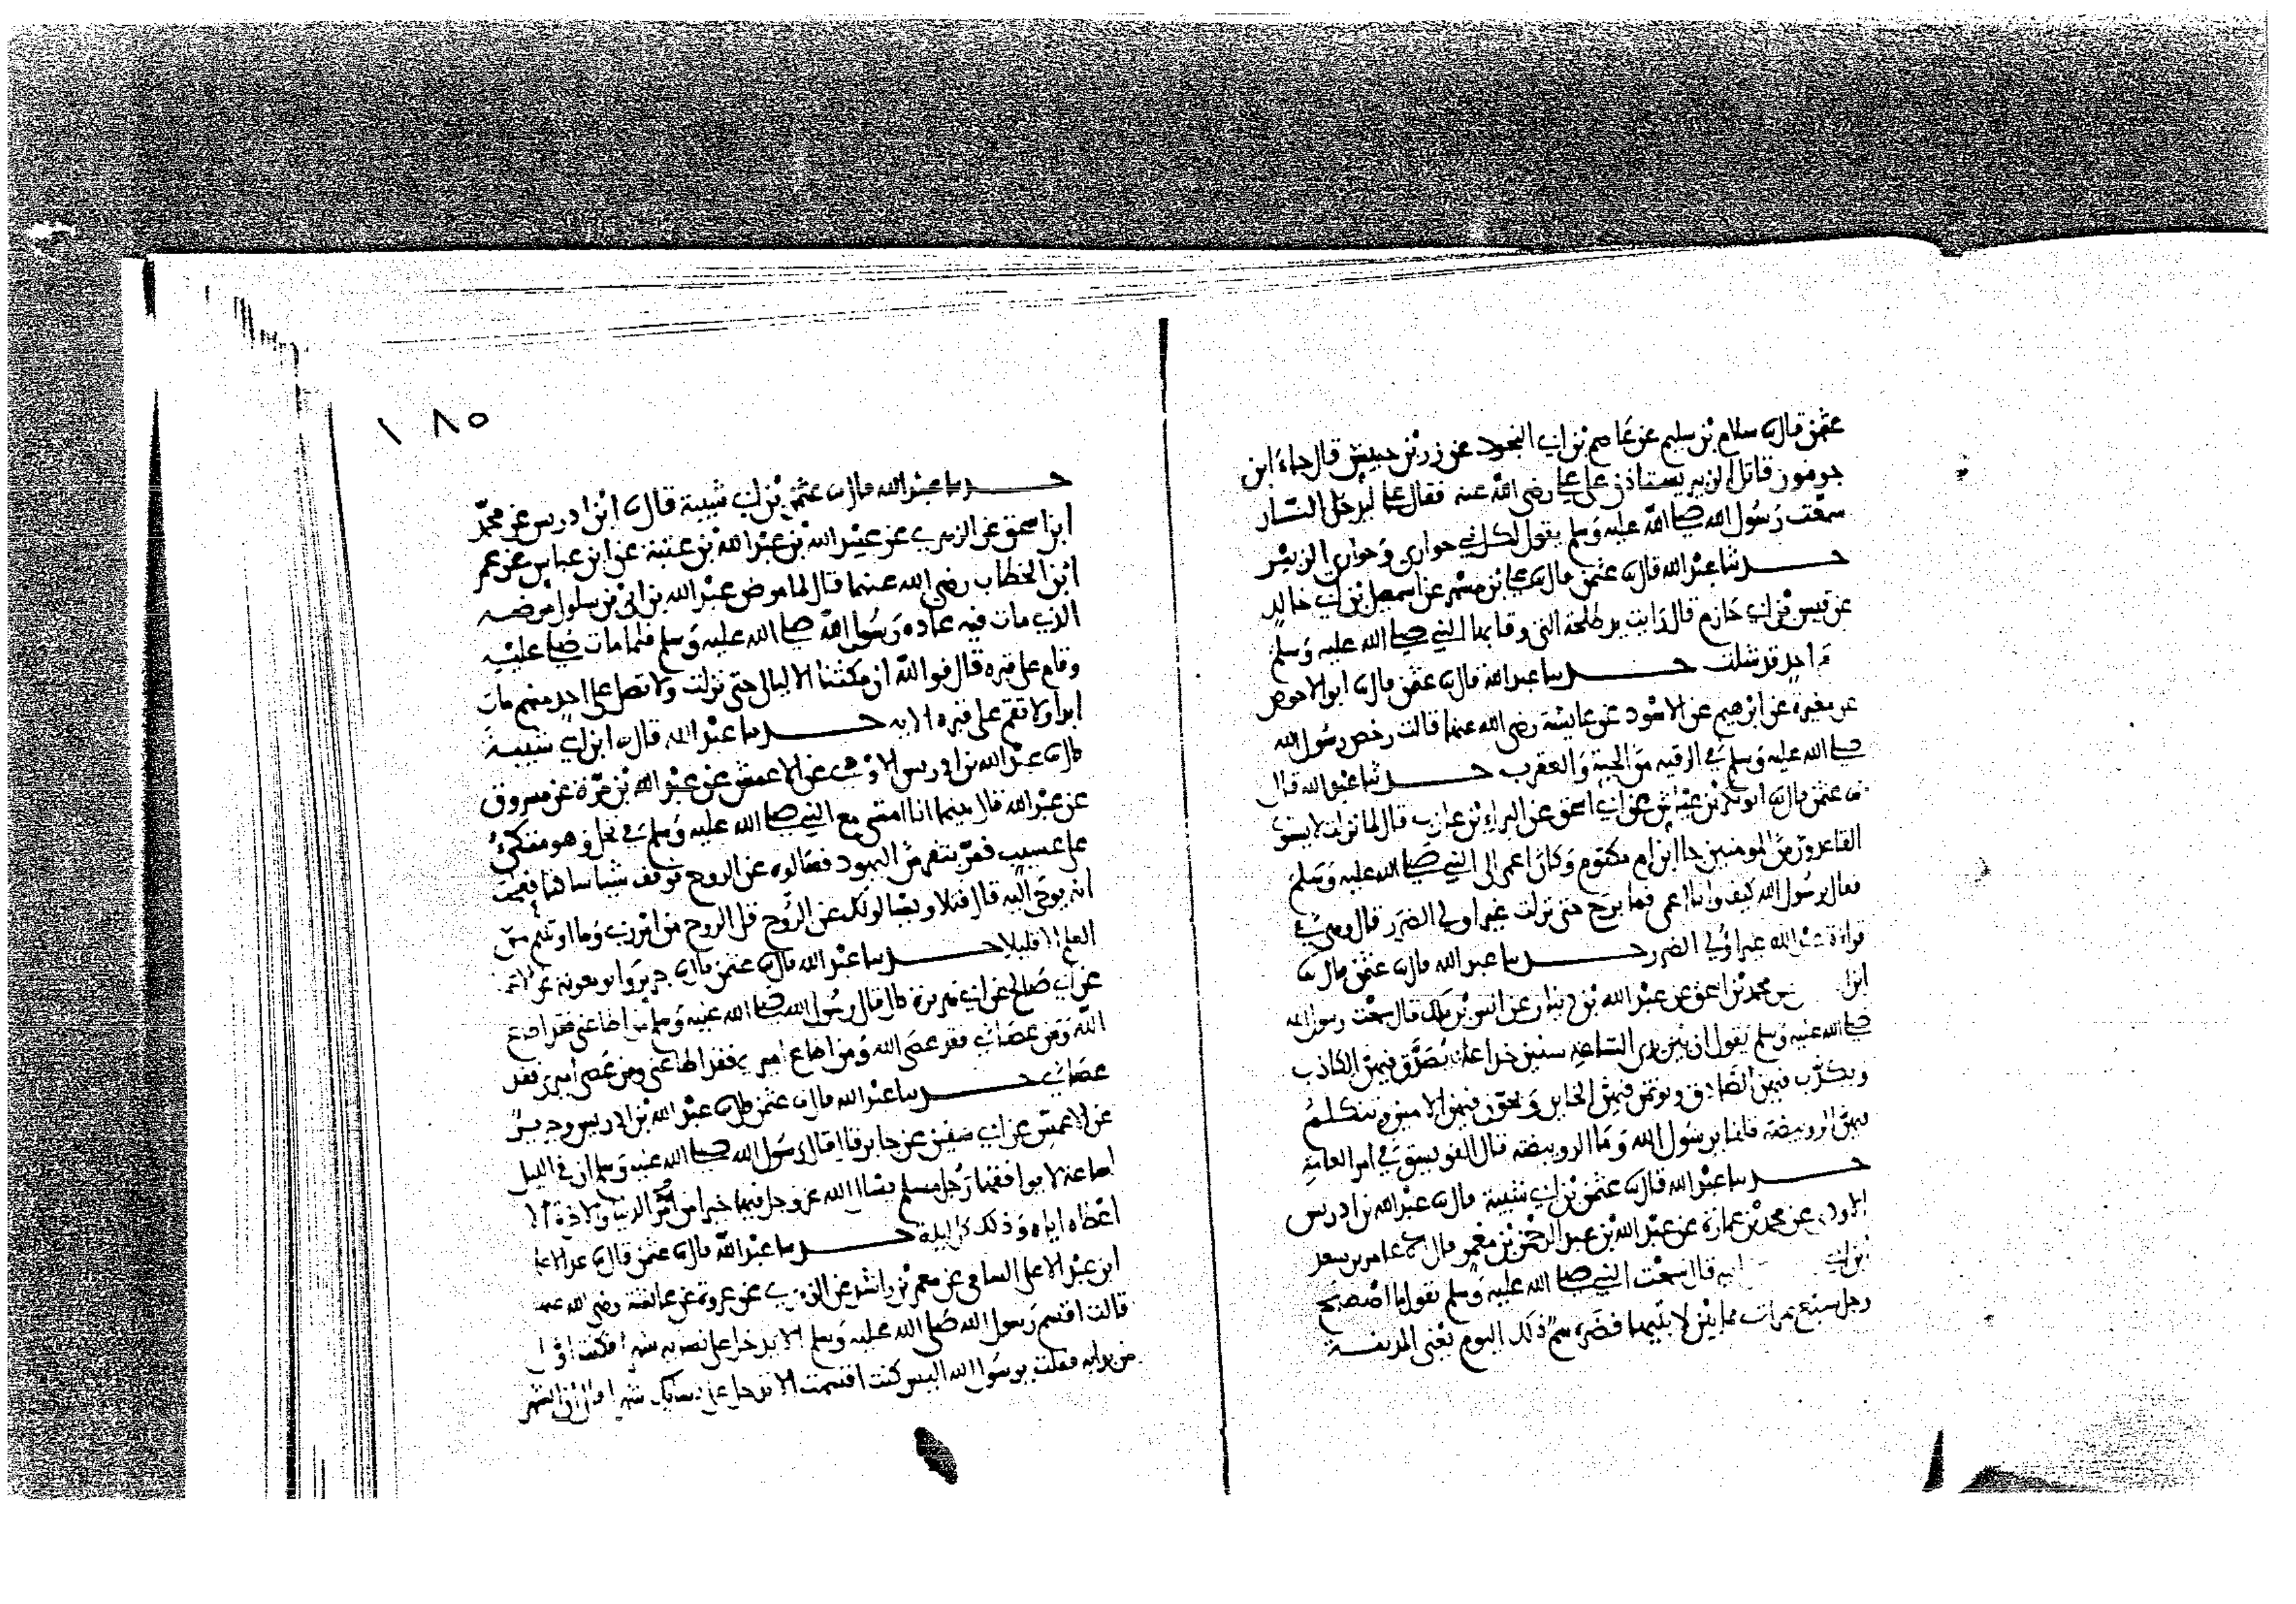 عثمن قال نا سلام بن سليم عن عاصم بن ابي النجود عن زر بن حبيش قال جاء ابن
جرموز قاتل الزبير يستاذن على علي رضي الله عنه فقال علي ليدخل النار
سمعت رسول الله صلى الله عليه وسلم يقول لكل نبي حواري وحواري الزبير
حدثنا عبد الله قال نا عثمن قال نا علي بن مسهر عن اسمعيل بن ابي خالد
عن قيس بن ابي حازم قال رايت يد طلحة التي وقا بها النبي صلى الله عليه وسلم
يوم احد قد شلت حدثنا عبد الله قال نا عثمن قال نا ابو الاحوص
عن مغيرة عن ابرهيم عن الاسود عن عايشة رضي الله عنها قالت رخص رسول الله
صلى الله عليه وسلم في الرقيه من الحية والعقرب حدثنا عبد الله قال
نا عثمن قال نا ابو بكر بن عياش عن ابي اسحق عن البراء بن عازب قال لما نزلت لا يستوي
القاعدون من المومنين جا ابن ام مكتوم وكان اعمى الى النبي صلى الله عليه وسلم
فقال يرسول الله كيف وانا اعمى فما برح حتى نزلت غير اولي الضرر قال وهي في
قراءة عبد الله غير اولي الضرر حدثنا عبد الله قال نا عثمن قال نا
ابن محمد بن اسحق عن عبد الله بن دينار عن انس بن ملك قال سمعت رسول الله
صلى الله عليه وسلم يقول ان بين يدي الساعه سنين خداعات يصدق فيهن الكاذب
ويكذب فيهن الصادق ويوتمن فيهن الخاين ويخون فيهن الامين ويتكلم
فيهن الرويبضة قالوا يرسول الله وما الرويبضه قال الفويسق في امر العامة
حدثنا عبد الله قال نا عثمن بن ابي شيبة قال نا عبد الله بن ادريس
الاودي عن محمد بن عمارة عن عبد الله بن عبد الرحمن بن معمر قال عامر بن سعد
بن ابي ابيه قال سمعت النبي صلى الله عليه وسلم يقول ما اصطبح
رجل سبع تمرات مما بين لابتيها فضره سم ذلك اليوم يعني المدينة
١٨٥
حدثنا عبد الله قال نا عثمن بن ابي شيبة قال نا ابن ادريس عن محمد
ابن اسحق عن الزهري عن عبيد الله بن عبد الله بن عتبة عن ابن عباس عن عمر
ابن الخطاب رضي الله عنهما قال لما مرض عبد الله بن ابي بن سلول مرضه
الذي مات فيه عاده رسول الله صلى الله عليه وسلم فلما مات صلى عليه
وقام على قبره قال فوالله ان مكثنا الا ليالي حتى نزلت ولا تصل على احد منهم مات
ابدا ولا تقم على قبره الايه حدثنا عبد الله قال نا ابن ابي شيبة
قال نا عبد الله بن ادريس الاودي عن الاعمش عن عبد الله بن مرة عن مسروق
عن عبد الله قال بينما انا امشي مع النبي صلى الله عليه وسلم في نخل وهو متكئ
على عسيب فمر بنفر من اليهود فسالوه عن الروح فوقف شيا ساكتا
انه يوحى اليه قال فتلا ويسالونك عن الروح قل الروح من امر ربي وما اوتيتم من
العلم الا قليلا حدثنا عبد الله قال نا عثمن قال نا جرير وابو معوية عن
عن ابي صالح عن ابي هريرة قال قال رسول الله صلى الله عليه وسلم من اطاعني فقد اطاع
الله ومن عصاني فقد عصى الله ومن اطاع اميري فقد اطاعني ومن عصى اميري فقد
عصاني حدثنا عبد الله قال نا عثمن قال نا عبد الله بن ادريس وجرير
عن الاعمش عن ابي سفين عن جابر قال قال رسول الله صلى الله عليه وسلم ان في الليل
لساعة لا يوافقها رجل مسلم يسال الله عز وجل فيها خيرا من امر الدنيا والاخرة الا
اعطاه اياه وذلك كل ليلة حدثنا عبد الله قال نا عثمن قال نا عبد الاعلى
ابن عبد الاعلى السامي عن معمر بن راشد عن الزهري عن عروة عن عائشة رضي الله عنها
قالت اقسم رسول الله صلى الله عليه وسلم الا يدخل على نسايه شهرا فكنت اول
من بدا به فقلت يرسول الله اليس كنت اقسمت الا تدخل على نسائك شهرا قال ان الشهر